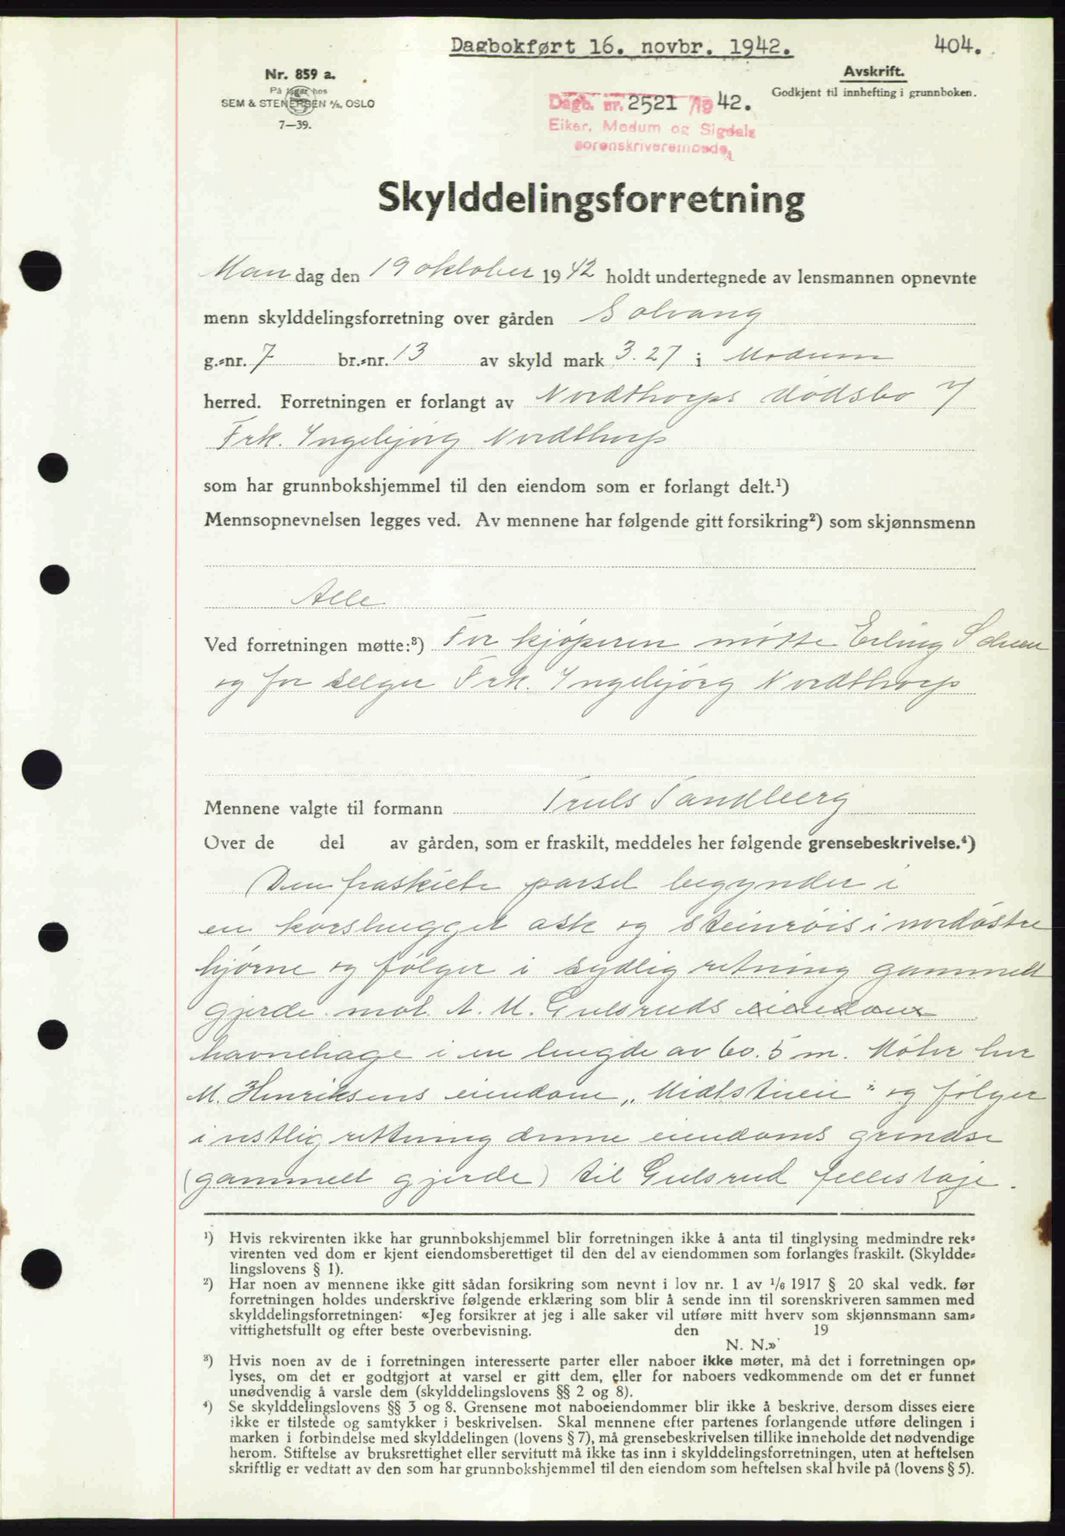 Dagbokført 16. novbr. 1942.
404.
Nr. 859 a.
På lager hos
SEM & STENERSEN A/S, OSLO
7—39.
Avskrift.
Godkjent til innhefting i grunnboken.
Dagb. nr. 2521 /19 42.
Eiker, Modum og Sigdals
sorenskriverembede
Skylddelingsforretning
Mandag den 19 oktober 1942 holdt undertegnede av lensmannen opnevnte
menn skylddelingsforretning over gården Solvang
g.-nr. 7 br.-nr. 13 av skyld mark 3.27 i Modum
herred. Forretningen er forlangt av Nordthorps dødsbo v/
Frk. Ingebjørg Nordthorp
som har grunnbokshjemmel til den eiendom som er forlangt delt.¹)
Mennsopnevnelsen legges ved. Av mennene har følgende gitt forsikring²) som skjønnsmenn
Alle
Ved forretningen møtte:³) For kjøperen møtte Erling
og for selger Frk. Ingebjørg Nordthorp
Mennene valgte til formann Truls Sandberg
Over de del av gården, som er fraskilt, meddeles her følgende grensebeskrivelse.⁴)
Den fraskielte parsel begynder i
en korshugget ask og steinrøis i nordøstre
hjørne og følger i sydlig retning gammelt
gjerde mot A. M. Gulsruds eiendom
havnehage i en lengde av 60.5 m. Møter her
M. Henriksens eiendom „ " og følger
i vestlig rettning denne eiendoms grendse
(gammelt gjerde) til Gulsrud felleseie.
¹) Hvis rekvirenten ikke har grunnbokshjemmel blir forretningen ikke å anta til tinglysing medmindre rek-
virenten ved dom er kjent eiendomsberettiget til den del av eiendommen som forlanges fraskilt. (Skyldde-
lingslovens § 1).
²) Har noen av mennene ikke gitt sådan forsikring som nevnt i lov nr. 1 av ¹/₆ 1917 § 20 skal vedk. før
forretningen holdes underskrive følgende erklæring som blir å sende inn til sorenskriveren sammen med
skylddelingsforretningen: «Jeg forsikrer at jeg i alle saker vil utføre mitt hverv som skjønnsmann sam-
vittighetsfullt og efter beste overbevisning. den 19
N. N.»
³) Hvis noen av de i forretningen interesserte parter eller naboer ikke møter, må det i forretningen op-
lyses, om det er godtgjort at varsel er gitt dem, eller for naboers vedkommende om det er funnet
unødvendig å varsle dem (skylddelingslovens §§ 2 og 8).
⁴) Se skylddelingslovens §§ 3 og 8. Grensene mot naboeiendommer blir ikke å beskrive, dersom disses eiere
ikke er tilstede og samtykker i beskrivelsen. Skal mennene efter partenes forlangende utføre delingen i
marken i forbindelse med skylddelingen (lovens § 7), må grensebeskrivelsen tillike inneholde det nødvendige
herom. Stiftelse av bruksrettighet eller servitutt må ikke tas inn i skylddelingsforretningen, uten at heftelsen
skriftlig er vedtatt av den som har grunnbokshjemmel til den eiendom som heftelsen skal hvile på (lovens § 5).